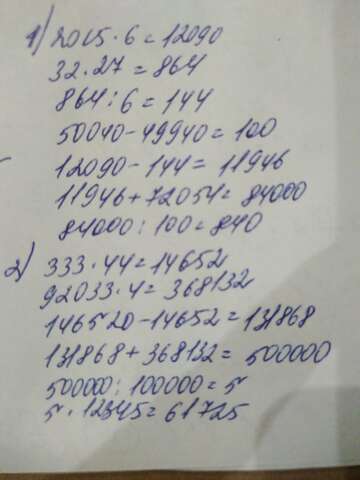 1) 2015 · 6 = 12090
32 · 27 = 864
864 : 6 = 144
50040 - 49940 = 100
12090 - 144 = 11946
11946 + 72054 = 84000
84000 : 100 = 840
2) 333 · 44 = 14652
92033 · 4 = 368132
146520 - 14652 = 131868
131868 + 368132 = 500000
500000 : 100000 = 5
5 · 12345 = 61725